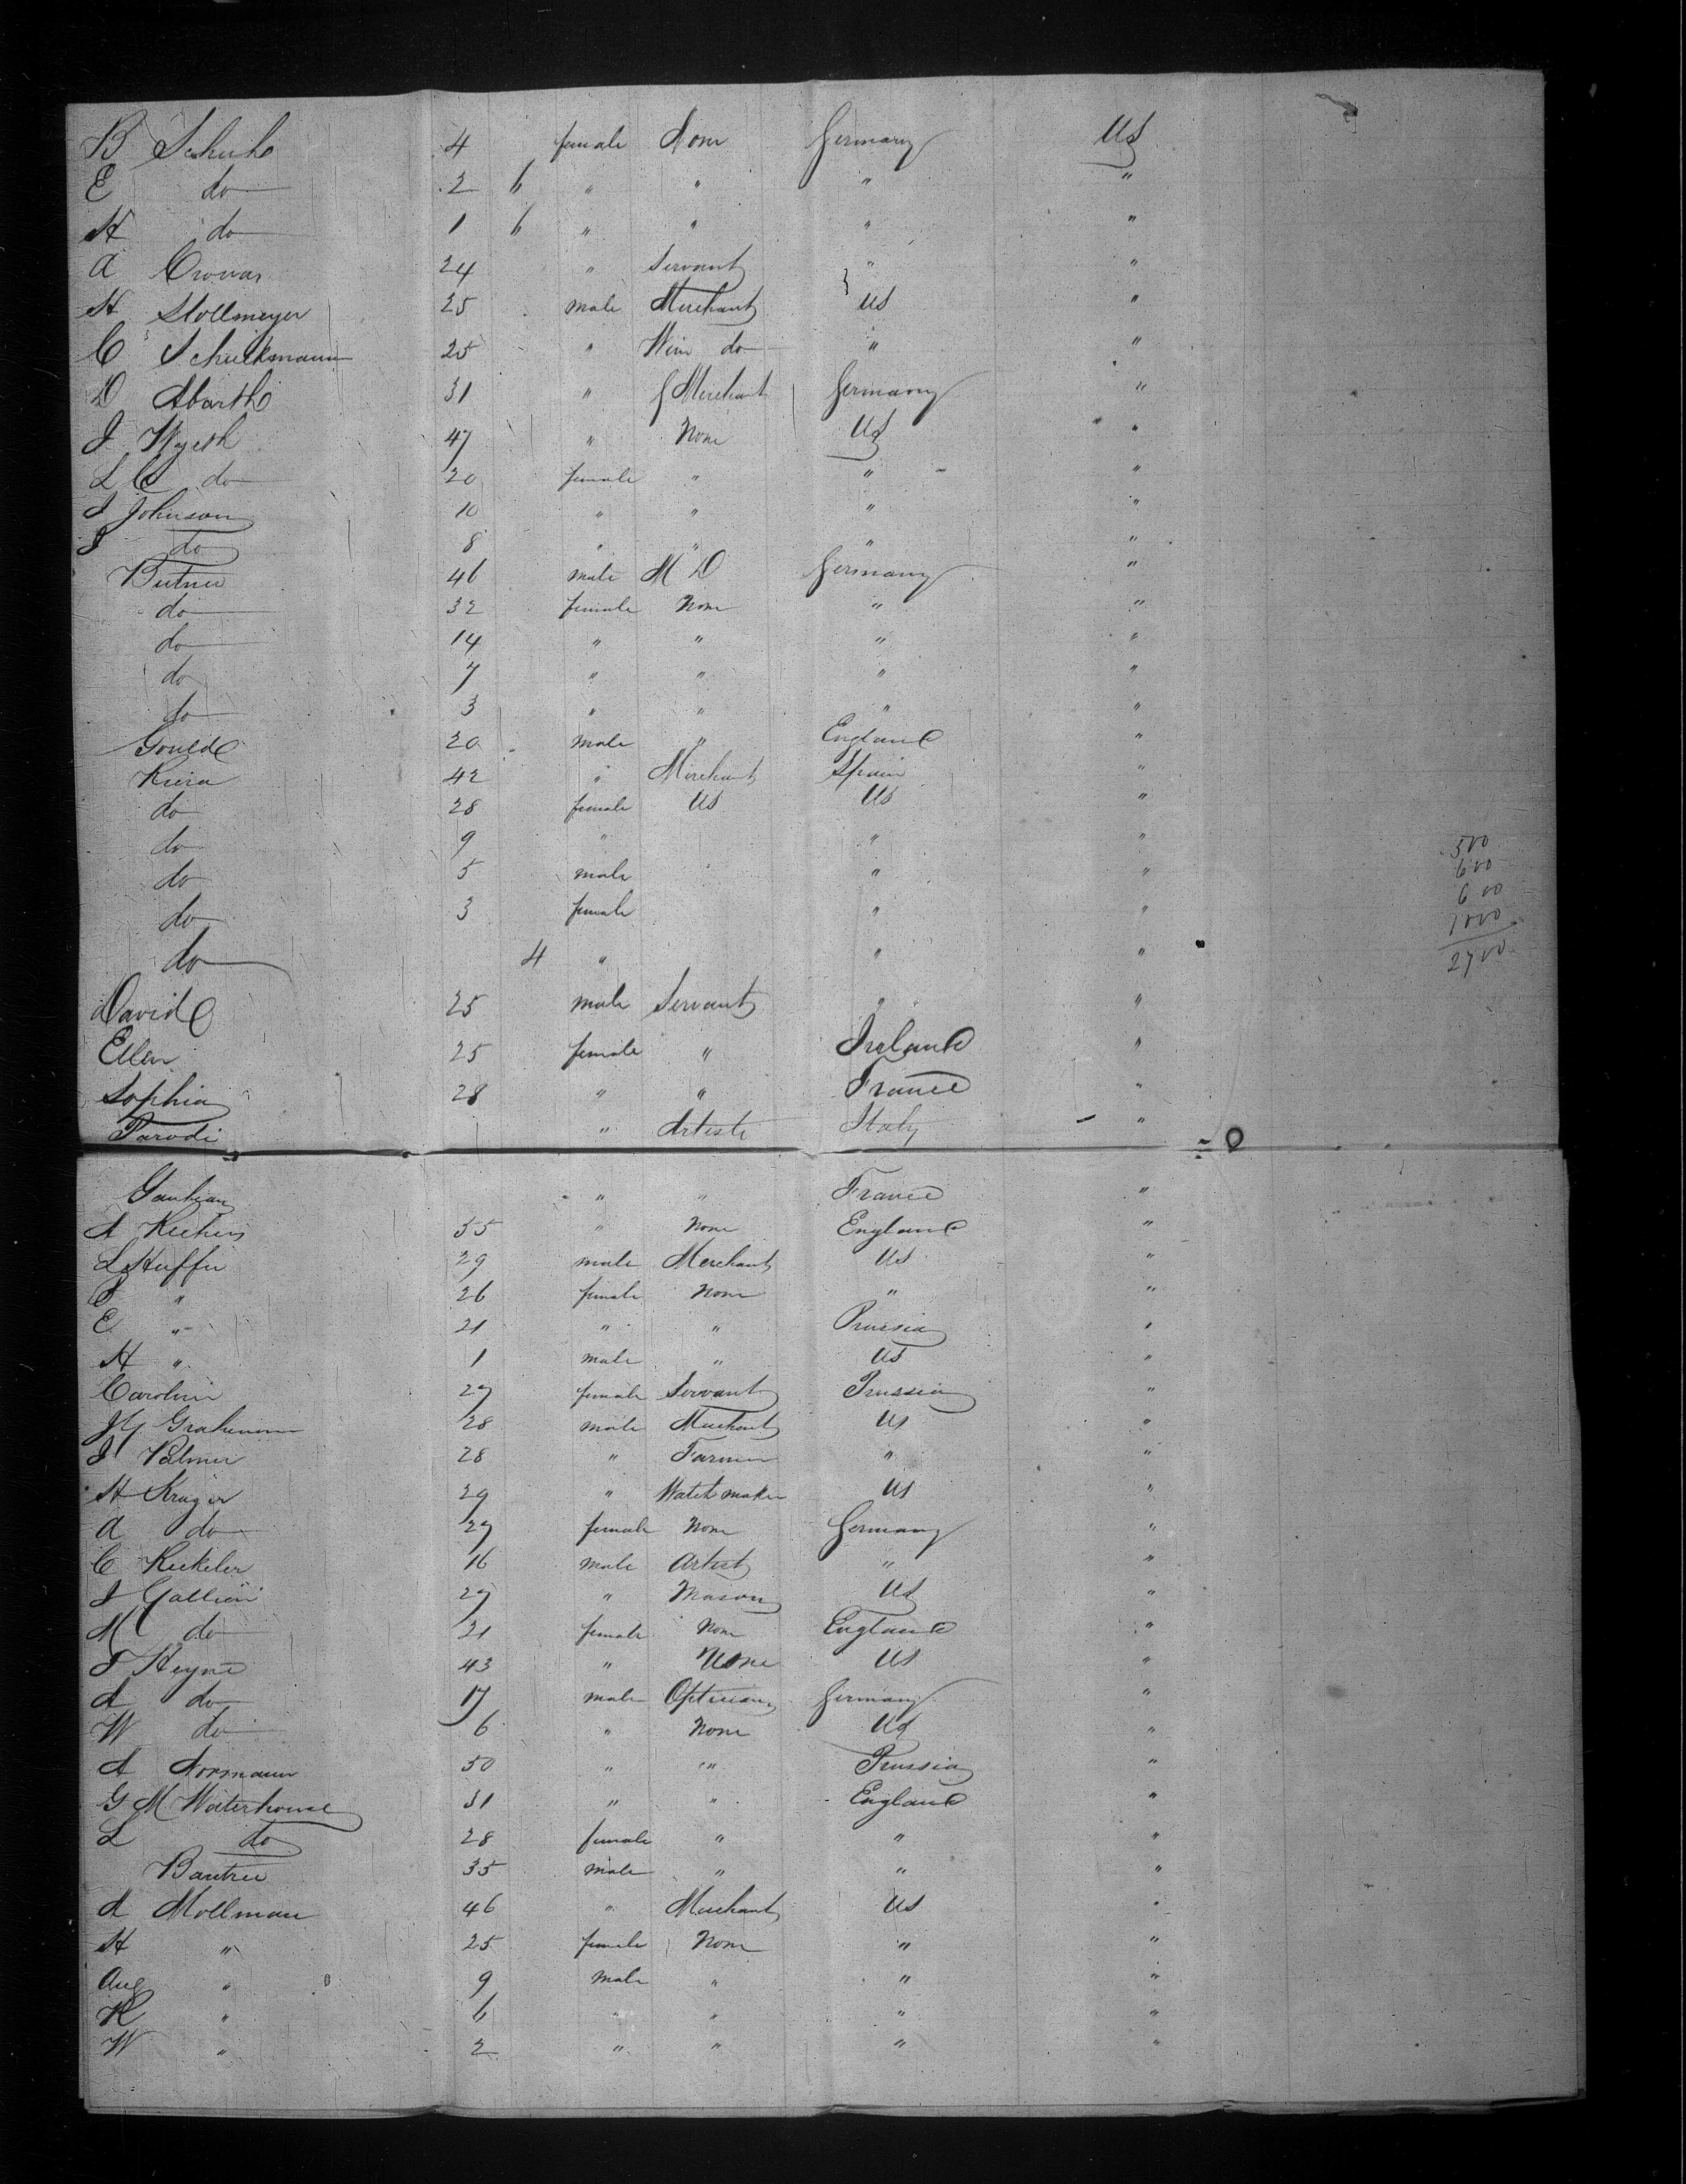 B Schuh 4 female None Germany US
E do 2 6 " " " "
H do 1 6 " " " "
A Crowas 24 " Servant " "
H Stollmeyer 25 male Merchant US "
C Schuckmann 25 " Wine do " "
D Abarth 31 " Merchant Germany "
J Wyeth 47 " None US "
L C do 20 female " " "
J Johnson 10 " " " "
J do 8 " " " "
Butner 46 male M D Germany "
do 32 female None " "
do 14 " " " "
do 7 " " " "
do 3 " " " "
Gould 20 male " England "
Riera 42 " Merchant Spain "
do 28 female US US "
do 9 " " "
do 5 male " "
do 3 female " "
do 4 " " "
500
600
600
1000
2700
David 25 male Servant " "
Ellen 25 female " Ireland "
Sophia 28 " " France "
Parodi " Artiste Italy "
" " France "
A 55 " None England "
L Huffer 29 male Merchant US "
" 26 female None " "
E " 21 " " Prussia "
H " 1 male " US "
Caroline 27 female Servant Prussia "
28 male Merchant US "
J Palmer 28 " Farmer " "
H Kruger 29 " Watchmaker US "
A do 27 female None Germany "
C Keckeler 16 male Artist " "
J Gallion 27 " Mason US "
M do 21 female None England "
F Heyne 43 " None US "
A do 17 male Optician Germany "
W do 6 " None US "
A Normann 50 " " Prussia "
G M Waterhouse 31 " " England "
L do 28 female " " "
Bautree 35 male " " "
A Mollman 46 " Merchant US "
H " 25 female None " "
Aug " 9 male " " "
K " 6 " " " "
W " 2 " " " "